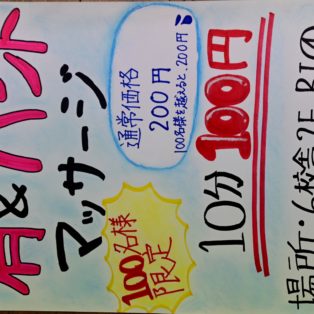 肩&ハンド
マッサージ
100名様
限定
通常価格
200円
100名様を越えると、200円
10分100円
場所:6校舎2F